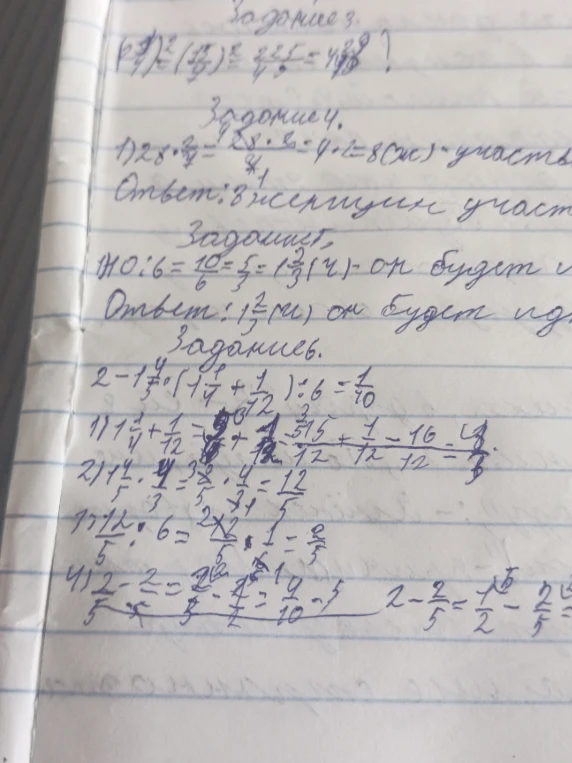 Задание 3.
)² = (15/7)² = 225/49 = 4 29/49
Задание 4.
1) 28 · 2/7 = 28 · 2/7 = 4 · 2 = 8 (ж) - участв
Ответ: 8 женщин участ
Задание 5.
1) 10 : 6 = 10/6 = 5/3 = 1 2/3 (ч) - он будет и
Ответ: 1 2/3 (ч) он будет ид
Задание 6.
2 - 1 4/5 · (1 1/4 + 1/12) : 6 = 1/10
1) 1 1/4 + 1/12 = 15/12 + 1/12 = 16/12 = 4/3
2) 1 4/5 · 4/3 = · 4/3 = 12/5
3) 12/5 : 6 = 12/5 · 1/6 = 2/5
4) 2/5 - 2/ = = 4/10 - 2 - 2/5 = - 2/5 =